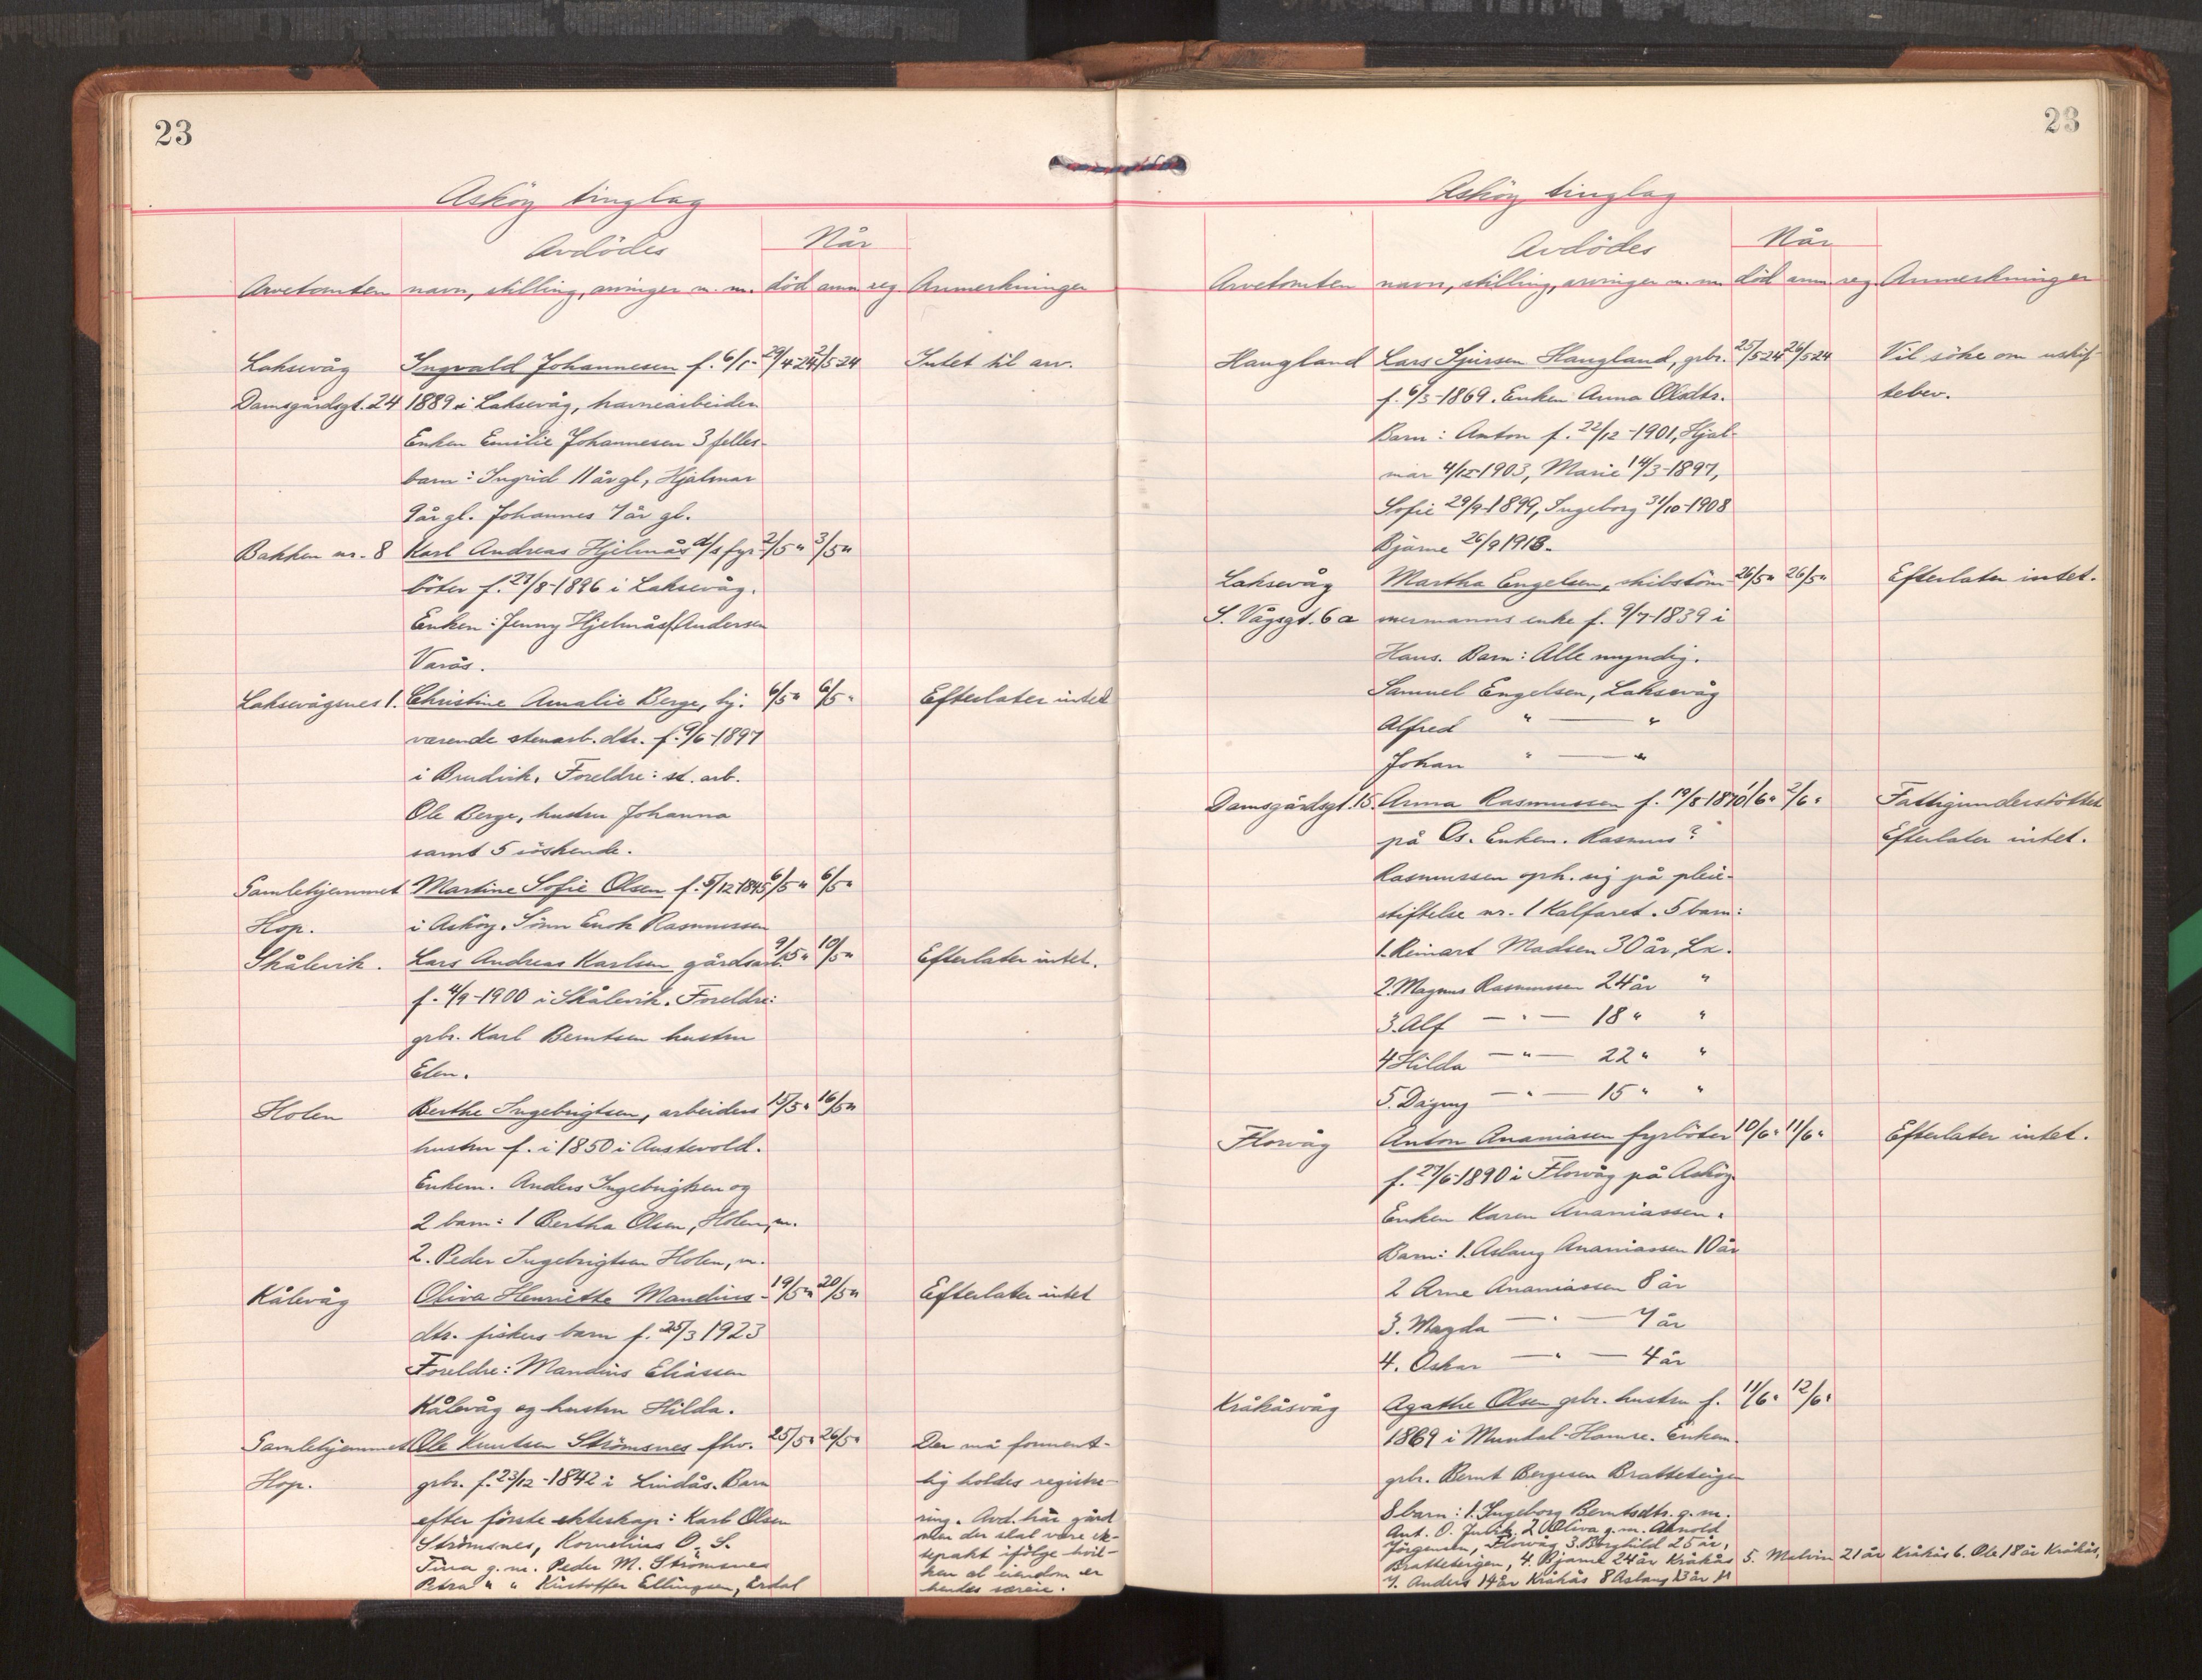 23
Asköy tinglag
Avdödes
Når
Arvetomten navn, stilling, arvinger m. m. död anm reg. Anmerkninger
Laksevåg Ingvald Johannesen f. 6/1- 29/4-24 2/5-24 Intet til arv.
Damsgårdsgt. 24 1889 i Laksevåg, havnearbeider
Enken Emilie Johannesen 3 felles-
barn: Ingrid 11 år gl, Hjalmar
9 år gl. Johannes 7 år gl.
Bakken nr. 8 Karl Andreas Hjelmås d/s fyr- 2/5 " 3/5 "
böter f. 27/8-1896 i Laksevåg.
Enken: Jenny Hjelmås f. Andersen
Varås.
Laksevågsnes 1. Christine Amalie Berge, hj. 6/5 " 6/5 " Efterlater intet
værende stenarb. dtr. f. 9/6-1897
i Bruvik. Foreldre: st. arb.
Ole Berge, hustru Johanna
samt 5 söskende.
Gamlehjemmet Martine Sofie Olsen f. 5/12 1845 6/5 " 6/5 "
Hop. i Asköy. Sönn Enok Rasmussen
Skålevik. Lars Andreas Karlsen gårdsarb. 9/5 " 10/5 " Efterlater intet.
f. 4/9-1900 i Skålevik. Foreldre:
grbr. Karl Berntsen hustru
Elen.
Holen Berthe Ingebrigtsen, arbeiders 15/5 " 16/5 "
hustru f. i 1850 i Austevold.
Enkem. Anders Ingebrigtsen og
2 barn: 1 Bertha Olsen, Holen, m.
2. Peder Ingebrigtsen Holen, m.
Kålevåg Oliva Henriette Mandius- 19/5 " 20/5 " Efterlater intet
dtr. fiskers barn f. 25/3 1923
Foreldre: Mandius Eliassen
Kålevåg og hustru Hilda.
Gamlehjemmet Ole Knutsen Strömsnes fhv. 25/5 " 26/5 " Der må forment-
Hop. grbr. f. 23/12-1842 i Lindås. Barn lig holdes registre-
efter förste ekteskap: Karl Olsen ring. Avd. har gård
Strömsnes, Kornelius O. S. men der skal være ek-
Tina g. m. Peder M. Strömsnes tepakt ifölge hvil-
Petra " " Kristoffer Ellingsen, Erdal ken al eiendom er
hendes særeie.
23
Asköy tinglag
Avdödes
Når
Arvetomten navn, stilling, arvinger m. m. död anm. reg. Anmerkninger
Haugland Lars Sjursen Haugland, grbr. 25/5 24 26/5 24 Vil söke om uskif-
f. 6/3-1869. Enken Anna Olsdtr. tebev.
Barn: Anton f. 22/12-1901, Hjal-
mar 4/12-1903, Marie 14/3-1897,
Sofie 29/9-1899, Ingeborg 31/10-1908
Bjarne 26/9 1913.
Laksevåg Martha Engelsen, skibstöm- 26/5 " 26/5 " Efterlater intet.
S. Vågsgt. 6 a mermanns enke f. 9/7-1839 i
Haus. Barn: Alle myndig.
Samuel Engelsen, Laksevåg
Alfred " — "
Johan " — "
Damsgårdsgt. 15. Anna Rasmussen f. 19/8-1870 1/6 " 2/6 " Fattigunderstöttet
på Os. Enkem. Rasmus? Efterlater intet.
Rasmussen oph. sig på pleie-
stiftelse nr. 1 Kalfaret. 5 barn:
1. Reinart Madsen 30 år, La.
2. Magnus Rasmussen 24 år "
3. Alf — " — 18 " "
4 Hilda — " — 22 " "
5. Dagny — " — 15 " "
Florvåg Anton Ananiasen fyrböter 10/6 " 11/6 " Efterlater intet.
f. 27/6-1890 i Florvåg på Asköy.
Enken Karen Ananiassen.
Barn: 1. Aslaug Ananiassen 10 år
2 Arne Ananiassen 8 år
3. Magda — " — 7 år
4. Oskar — " — 4 år
Kråkåsvåg Agathe Olsen grbr. hustru f. 11/6 " 12/6 "
1869 i Mundal-Hamre. Enkem.
grbr. Bernt Bergesen Bratteteigen
8 barn: 1. Ingeborg Berntsdtr. g. m.
Ant. O. Juvik, 2 Oliva g. m. Arnold
Jörgensen, Florvåg 3. Borghild 25 år,
Bratteteigen, 4. Bjarne 24 år Kråkås 5. Malvin 21 år Kråkås 6. Ole 18 år Kråkås,
7. Anders 14 år Kråkås 8 Aslaug 13 år